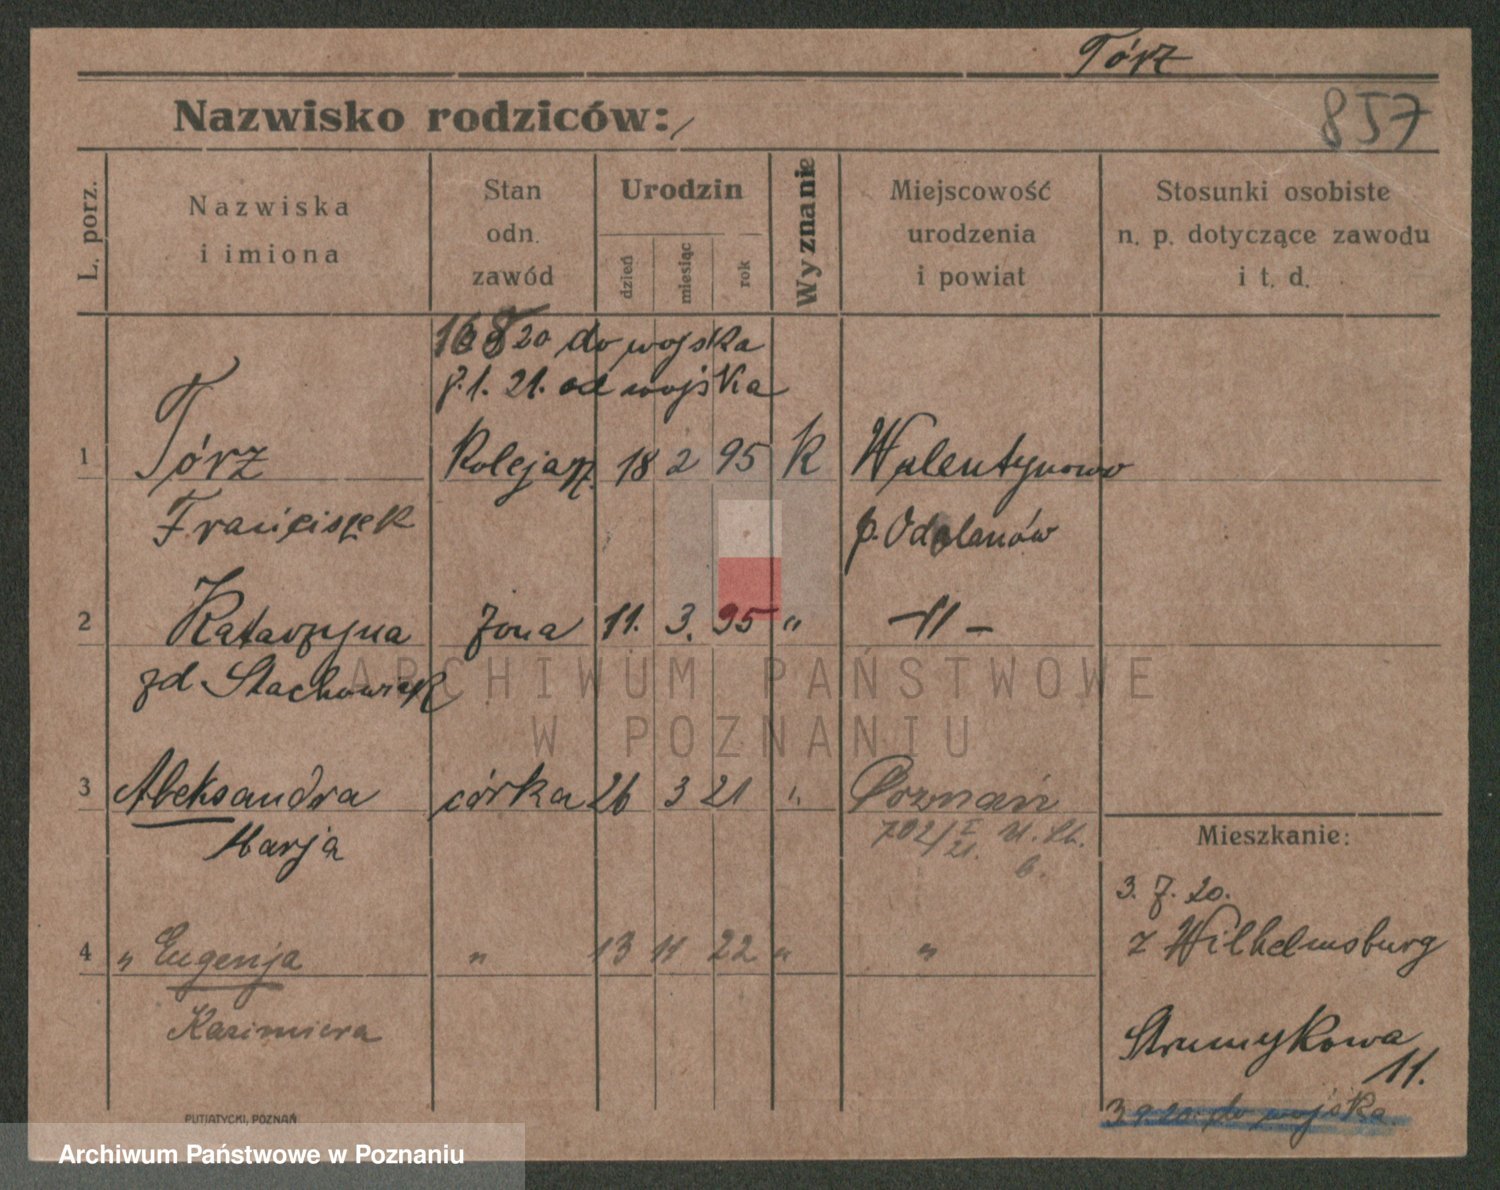 Tórz
857
Nazwisko rodziców:
L. porz.
Nazwiska
i imiona
Stan
odn.
zawód
Urodzin
dzień
miesiąc
rok
Wyznanie
Miejscowość
urodzenia
i powiat
Stosunki osobiste
n. p. dotyczące zawodu
i t. d.
16 8 20 do wojska
8.1. 21. od wojska
1 Tórz Kolejarz. 18 2 95 K Walentynowo
Franciszek p. Odolanów
2 Katarzyna żona 11. 3. 95 " -11-
zd Stachowiak
3 Aleksandra córka 26 3 21 " Poznań
Marja 702/I 21.
Mieszkanie:
3. 7. 20.
z Wilhelmsburg
4 " Eugenja " 13 11 22 " "
Kazimiera
Strumykowa
11.
3 9 20. do wojska
PUTIATYCKI, POZNAŃ
ARCHIWUM PAŃSTWOWE
W POZNANIU
Archiwum Państwowe w Poznaniu